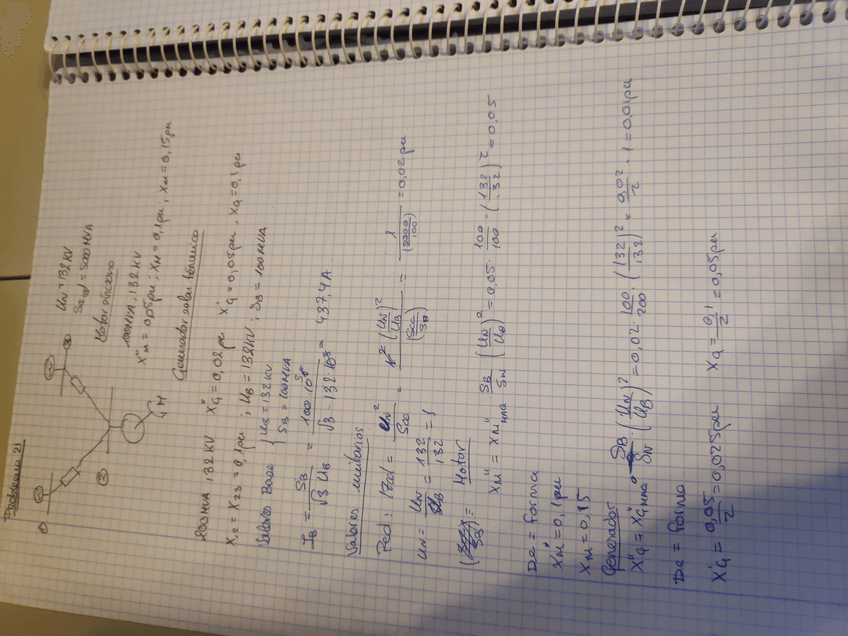 Problema 21
① ② ③
M
Un = 132 KV
Sred = 5000 MVA
Motor síncrono
100MVA, 132 KV
X''M = 0,05pu; X'M = 0,1pu; XM = 0,15pu
Generador solar térmico
200MVA 132 KV X''G = 0,02 pu X'G = 0,05pu, XG = 0,1 pu
X12 = X23 = 0,1 pu; UB = 132KV; SB = 100MVA
Valores Base { UB = 132 KV
SB = 100MVA
IB = SB / (√3 UB) = 100·10^6 / (√3 · 132·10^3) = 437,4 A
Valores unitarios
Red: Zred = Un² / Scc = (Un/UB)² / (Scc/SB) = 1 / (5000/100) = 0,02pu
Un = Un/UB = 132/132 = 1
Motor
X''M = X''M nma · SB/SN · (UN/UB)² = 0,05 · 100/100 · (132/132)² = 0,05
De = forma
X'M = 0,1pu
XM = 0,15
Generador
X''G = X''G nma · SB/SN · (UN/UB)² = 0,02 · 100/200 · (132/132)² = 0,02/2 · 1 = 0,01pu
De = forma
X'G = 0,05/2 = 0,025pu XG = 0,1/2 = 0,05pu